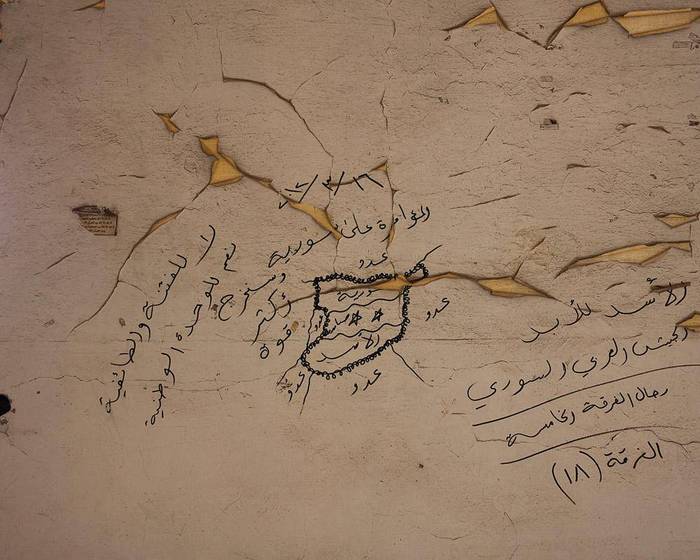 ٢٠١٢/٣/١٦
المؤامرة على سورية
وسنخرج
أكثر
قوة
لا للفتنة والطائفية
نعم للوحدة الوطنية
عدو
عدو
عدو
عدو
سورية
الأسد
الأسد للأبد
الجيش العربي السوري
رجال الفرقة الخامسة
الفرقة (١٨)